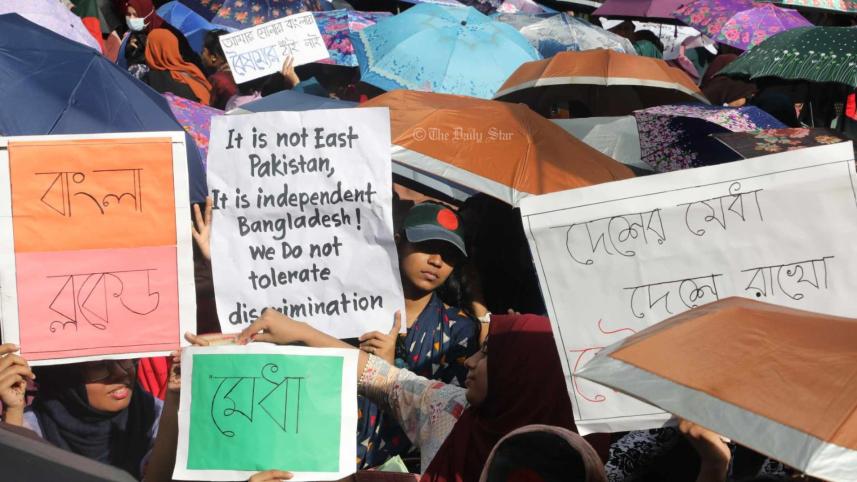 আমার সোনার বাংলায়
বৈষম্যের ঠাঁই নাই
It is not East
Pakistan,
It is independent
Bangladesh!
We Do not
tolerate
discrimination
© The Daily Star
বাংলা
ব্লকেড
মেধা
দেশের মেধা
দেশে রাখো